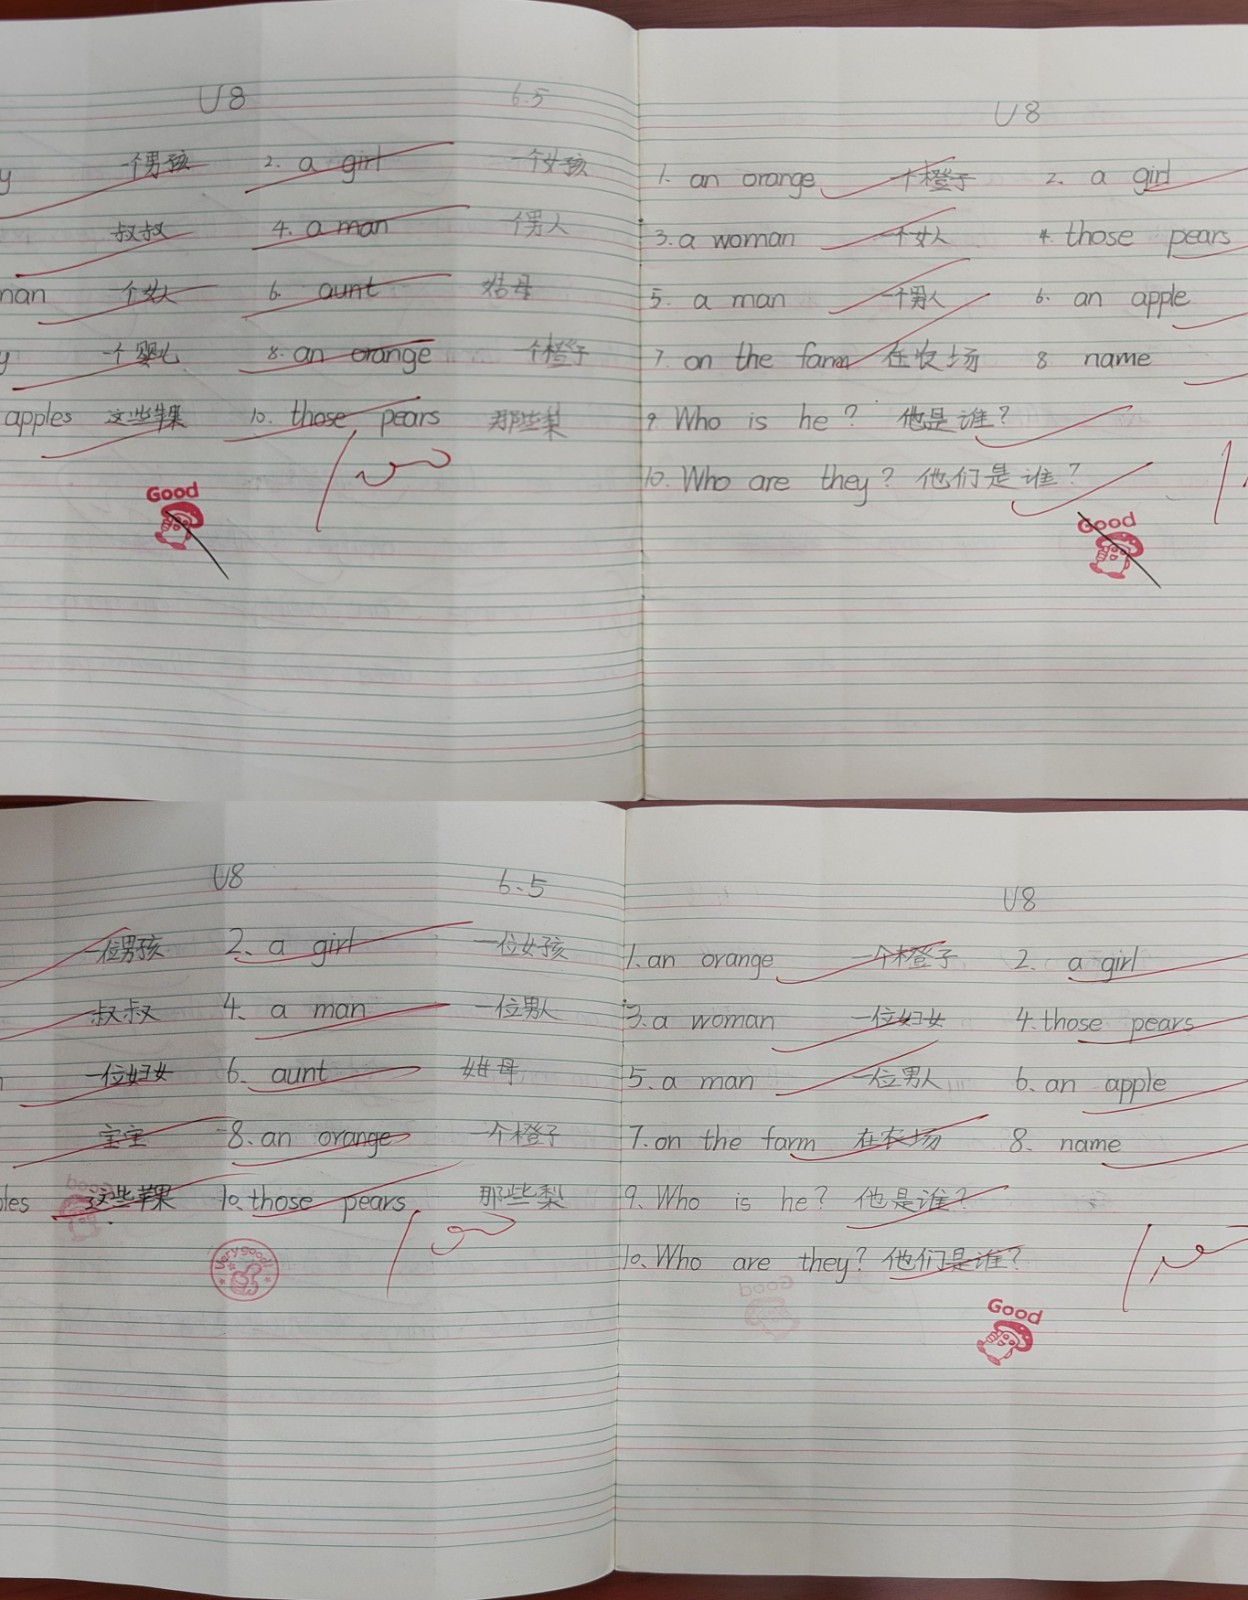 U8 6.5
一个男孩 2. a girl 一个女孩
叔叔 4. a man 一个男人
一个女人 6. aunt 姑母
一个婴儿 8. an orange 一个橙子
apples 这些苹果 10. those pears 那些梨
100
Good
U8
1. an orange 一个橙子 2. a girl
3. a woman 一个女人 4. those pears
5. a man 一个男人 6. an apple
7. on the farm 在农场 8 name
9 Who is he? 他是谁?
10. Who are they? 他们是谁?
Good
U8 6.5
一位男孩 2. a girl 一位女孩
叔叔 4. a man 一位男人
一位妇女 6. aunt 姑母
宝宝 8. an orange 一个橙子
这些苹果 10. those pears 那些梨
100
Very good!
U8
1. an orange 一个橙子 2. a girl
3. a woman 一位妇女 4. those pears
5. a man 一位男人 6. an apple
7. on the farm 在农场 8. name
9. Who is he? 他是谁?
10. Who are they? 他们是谁?
100
Good